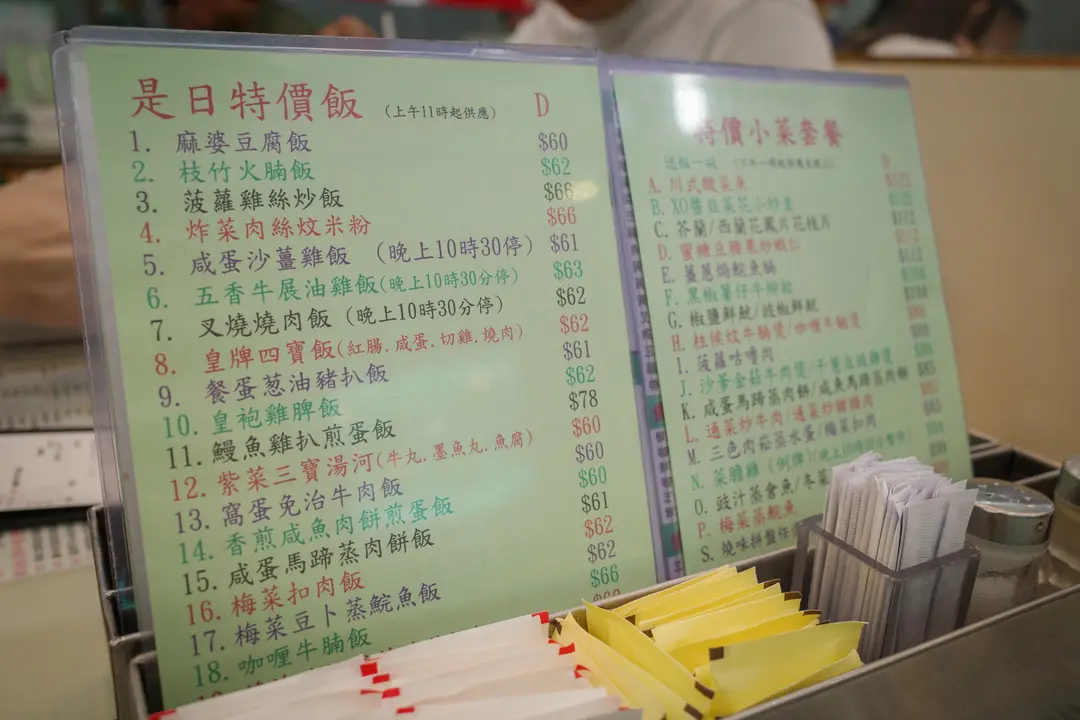 是日特價飯 (上午11時起供應) D
1. 麻婆豆腐飯 $60
2. 枝竹火腩飯 $62
3. 菠蘿雞絲炒飯 $66
4. 炸菜肉絲炆米粉 $66
5. 咸蛋沙薑雞飯 (晚上10時30停) $61
6. 五香牛展油雞飯(晚上10時30分停) $63
7. 叉燒燒肉飯 (晚上10時30分停) $62
8. 皇牌四寶飯(紅腸.咸蛋.切雞.燒肉) $62
9. 餐蛋葱油豬扒飯 $61
10. 皇袍雞脾飯 $62
11. 鰻魚雞扒煎蛋飯 $78
12. 紫菜三寶湯河(牛丸.墨魚丸.魚腐) $60
13. 窩蛋免治牛肉飯 $60
14. 香煎咸魚肉餅煎蛋飯 $60
15. 咸蛋馬蹄蒸肉餅飯 $61
16. 梅菜扣肉飯 $62
17. 梅菜豆卜蒸鯇魚飯 $62
18. 咖喱牛腩飯 $66
特價小菜套餐
送飯一碗 D
A. 川式酸菜魚
B. XO醬韮菜花小炒皇
C. 芥蘭/西蘭花鳳片花枝片
D. 蜜糖豆腰果炒蝦仁
E. 薑蔥焗鯇魚腩
F. 黑椒薯仔牛柳粒
G. 椒鹽鮮魷/豉椒鮮魷
H. 柱候炆牛腩煲/咖喱牛腩煲
I. 菠蘿咕嚕肉
J. 沙爹金菇牛肉煲/干葱豆豉雞煲
K. 咸蛋馬蹄蒸肉餅/咸魚馬蹄蒸肉餅
L. 通菜炒牛肉/通菜炒
M. 三色肉崧蒸水蛋/梅菜扣肉
N. 菜膽雞 (例牌)(晚上10時30分暫停)
O. 豉汁蒸倉魚/冬菜
P. 梅菜蒸鯇魚
S. 燒味拼盤任